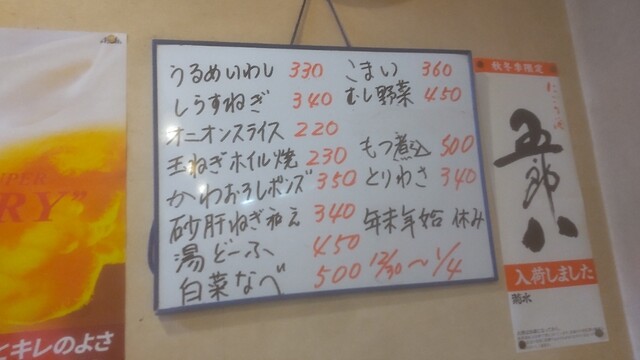 うるめいわし 330
しらすねぎ 340
オニオンスライス 220
玉ねぎホイル焼 230
かわおろしポンズ 350
砂肝ねぎ和え 340
湯どーふ 450
白菜なべ 500
こまい 360
むし野菜 450
もつ煮込 500
とりわさ 340
年末年始 休み
12/30〜1/4
秋冬季限定
にごり酒
五郎八
入荷しました
菊水
SUPER
RY"
とキレのよさ